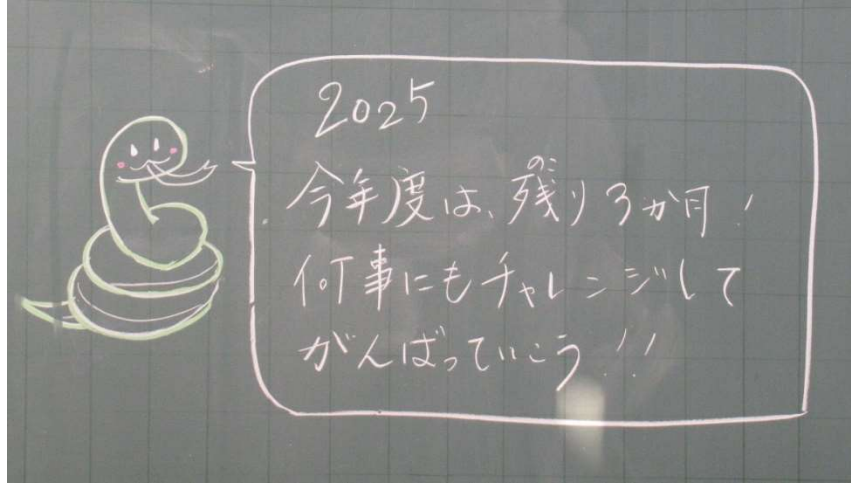 2025
今年度は、残り3か月！
のこ
何事にもチャレンジして
がんばっていこう!!